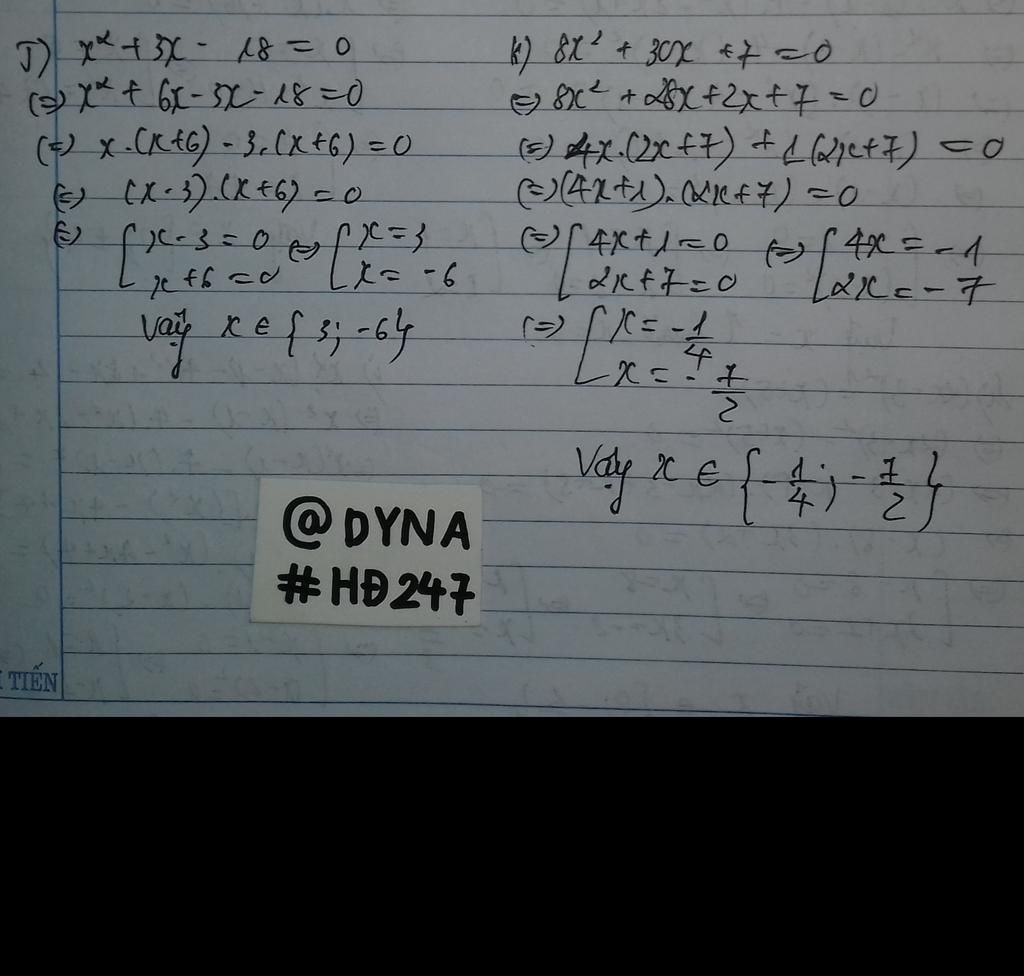 J) x² + 3x - 18 = 0
(=) x² + 6x - 3x - 18 = 0
(=) x.(x+6) - 3.(x+6) = 0
(=) (x-3).(x+6) = 0
(=) [ x-3 = 0 (=) [ x = 3
x+6 = 0 x = -6
Vậy x ∈ {3; -6}
K) 8x² + 30x + 7 = 0
(=) 8x² + 28x + 2x + 7 = 0
(=) 4x.(2x+7) + 1(2x+7) = 0
(=) (4x+1).(2x+7) = 0
(=) [ 4x+1 = 0 (=) [ 4x = -1
2x+7 = 0 2x = -7
(=) [ x = -1/4
x = -7/2
Vậy x ∈ {-1/4; -7/2}
@DYNA
#HĐ247
TIẾN